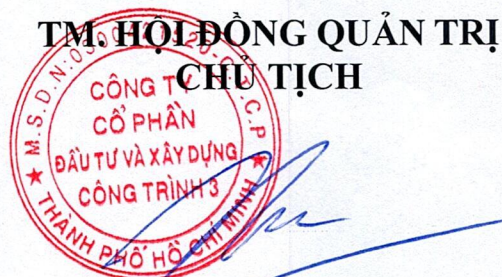 TM. HỘI ĐỒNG QUẢN TRỊ
CHỦ TỊCH
CÔNG TY
CỔ PHẦN
ĐẦU TƯ VÀ XÂY DỰNG
CÔNG TRÌNH 3
THÀNH PHỐ HỒ CHÍ MINH